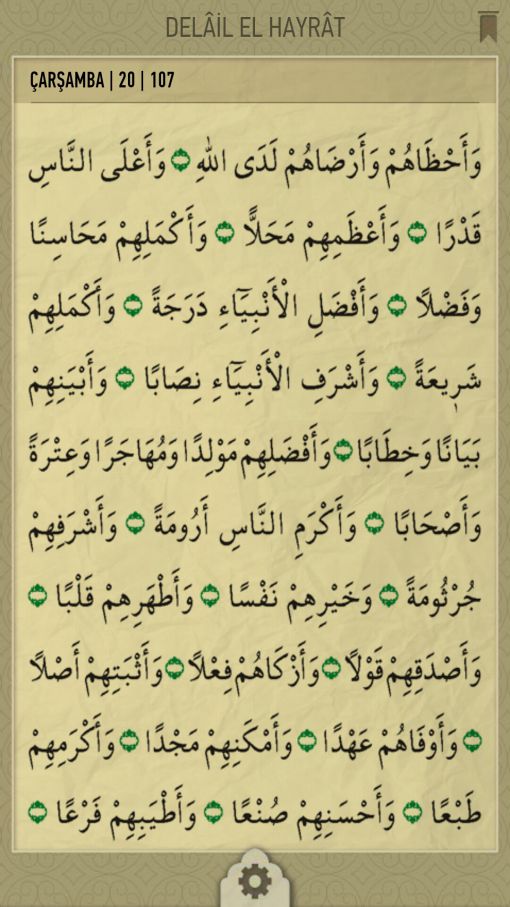 DELÂİL EL HAYRÂT
ÇARŞAMBA | 20 | 107
وَأَحْظَاهُمْ وَأَرْضَاهُمْ لَدَى اللهِ ۝ وَأَعْلَى النَّاسِ
قَدْرًا ۝ وَأَعْظَمِهِمْ مَحَلاًّ ۝ وَأَكْمَلِهِمْ مَحَاسِنًا
وَفَضْلاً ۝ وَأَفْضَلِ الْأَنْبِيَٓاءِ دَرَجَةً ۝ وَأَكْمَلِهِمْ
شَرِيعَةً ۝ وَأَشْرَفِ الْأَنْبِيَٓاءِ نِصَابًا ۝ وَأَبْيَنِهِمْ
بَيَانًا وَخِطَابًا ۝ وَأَفْضَلِهِمْ مَوْلِدًا وَمُهَاجَرًا وَعِتْرَةً
وَأَصْحَابًا ۝ وَأَكْرَمِ النَّاسِ أَرُومَةً ۝ وَأَشْرَفِهِمْ
جُرْثُومَةً ۝ وَخَيْرِهِمْ نَفْسًا ۝ وَأَطْهَرِهِمْ قَلْبًا ۝
وَأَصْدَقِهِمْ قَوْلاً ۝ وَأَزْكَاهُمْ فِعْلاً ۝ وَأَثْبَتِهِمْ أَصْلاً
۝ وَأَوْفَاهُمْ عَهْدًا ۝ وَأَمْكَنِهِمْ مَجْدًا ۝ وَأَكْرَمِهِمْ
طَبْعًا ۝ وَأَحْسَنِهِمْ صُنْعًا ۝ وَأَطْيَبِهِمْ فَرْعًا ۝